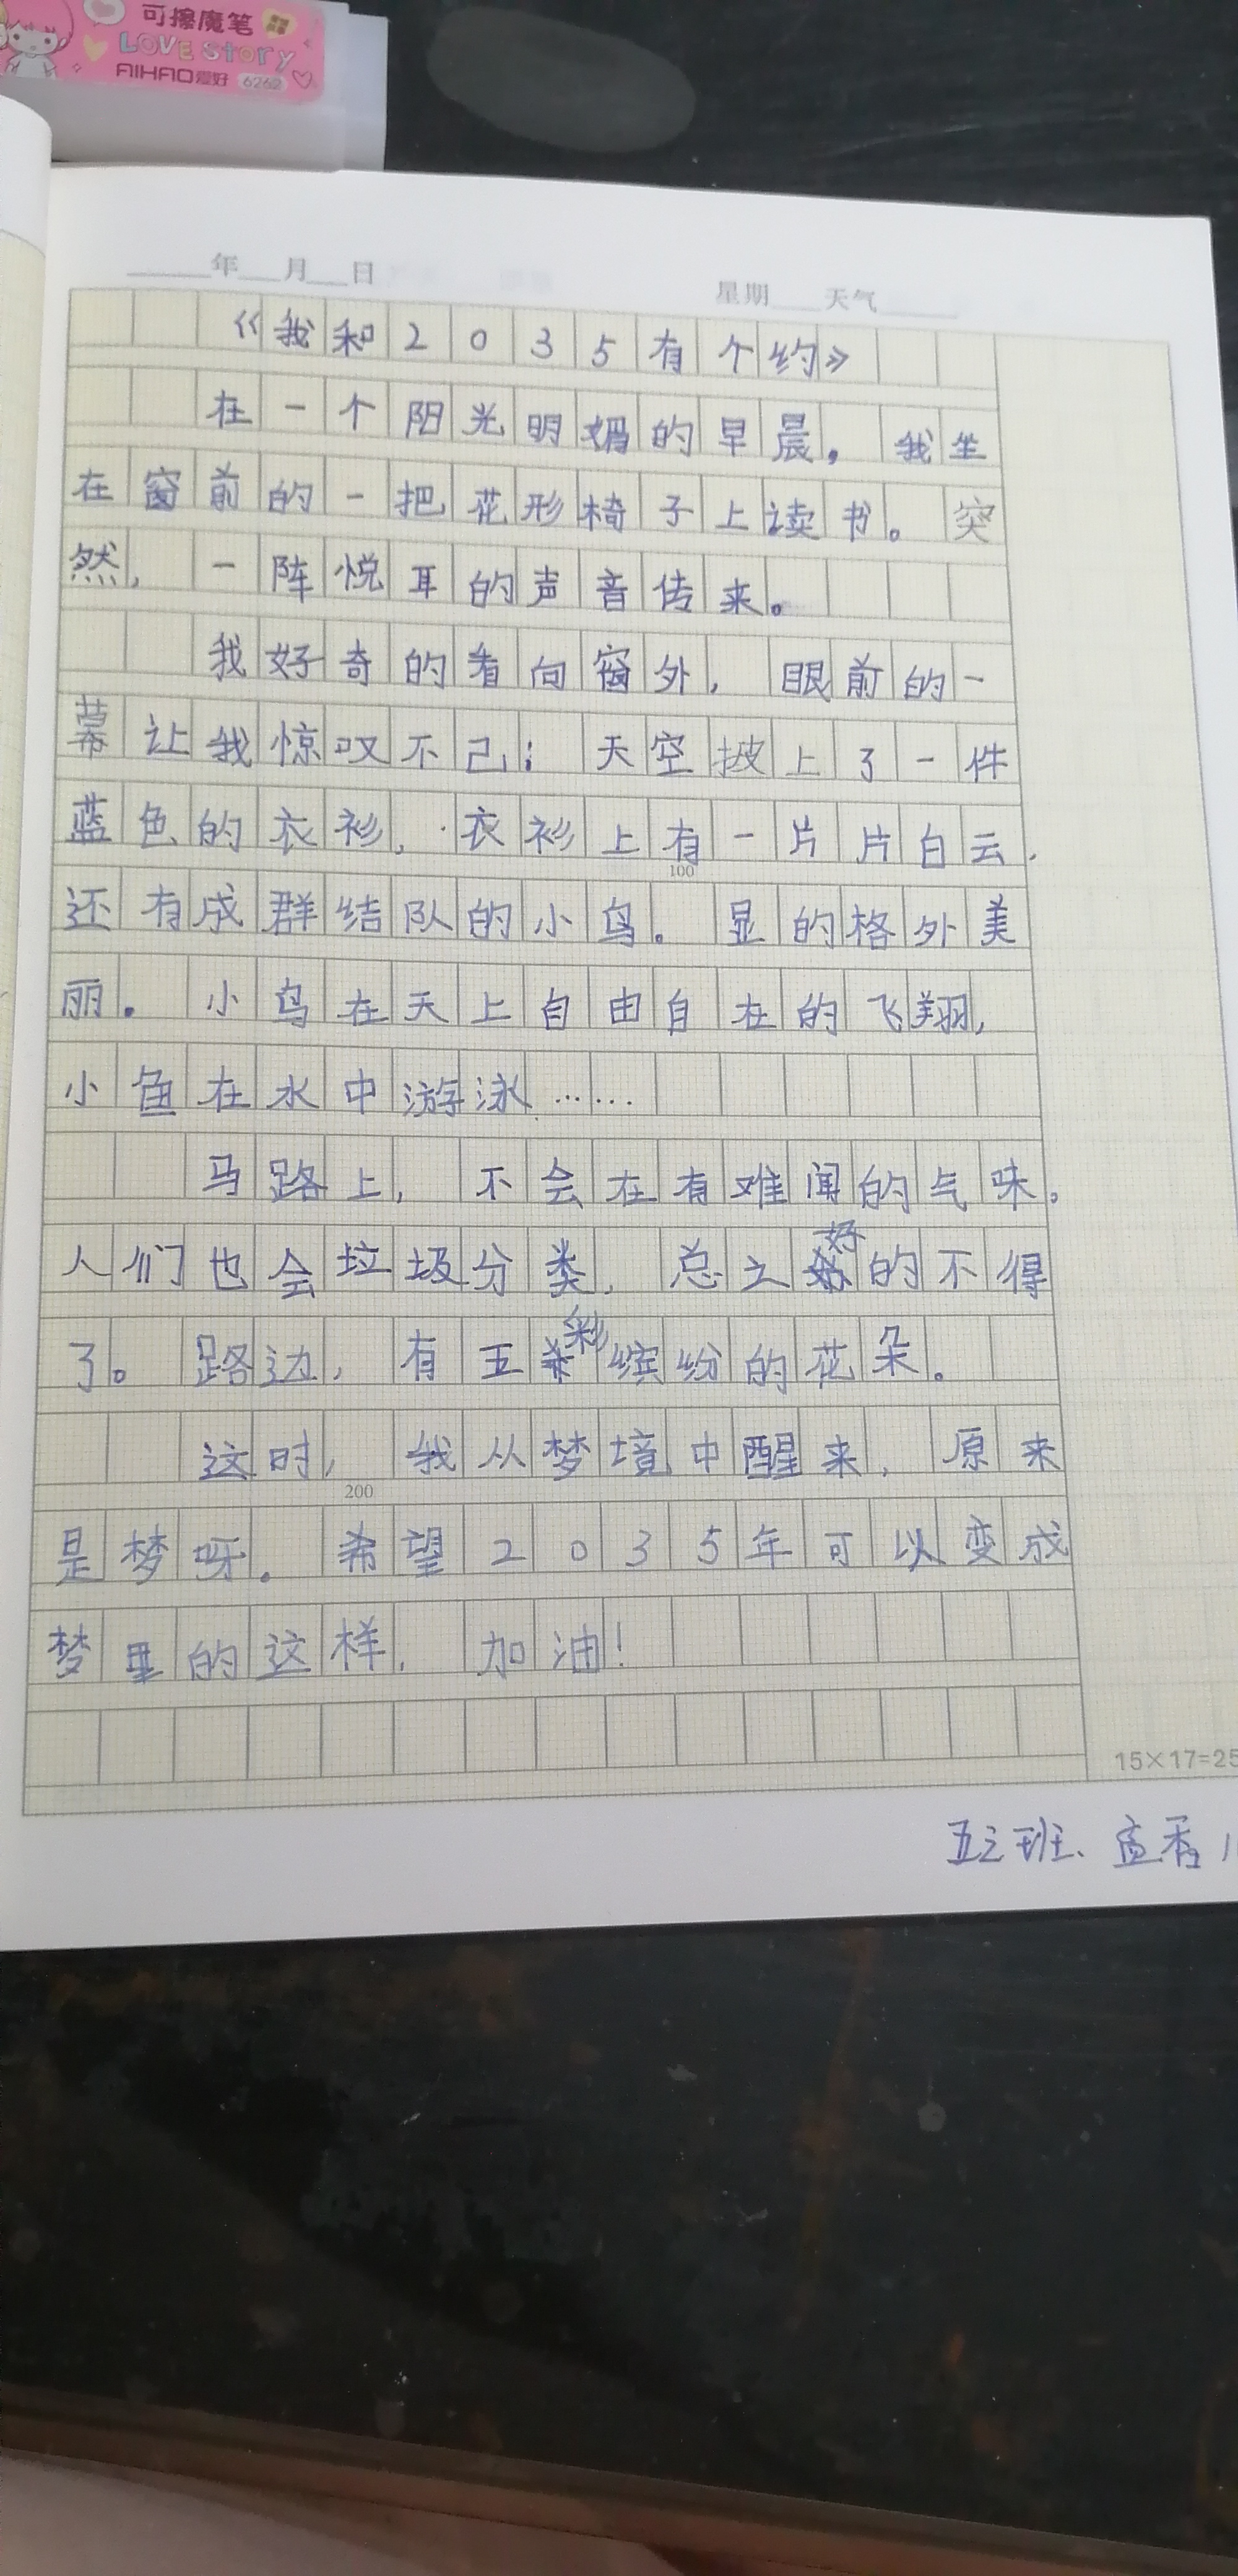 可擦魔笔
LOVE Story
AIHAO爱好 6262
年 月 日
星期 天气
《我和2035有个约》
在一个阳光明媚的早晨，我坐
在窗前的一把花形椅子上读书。突
然，一阵悦耳的声音传来。
我好奇的看向窗外，眼前的一
幕让我惊叹不己；天空披上了一件
蓝色的衣衫，衣衫上有一片片白云，
100
还有成群结队的小鸟。显的格外美
丽。小鸟在天上自由自在的飞翔，
小鱼在水中游泳……
马路上，不会在有难闻的气味。
人们也会垃圾分类，总之好的不得
了。路边，有五彩缤纷的花朵。
这时，我从梦境中醒来，原来
200
是梦呀。希望2035年可以变成
梦里的这样，加油！
15×17=25
五三班、孟香